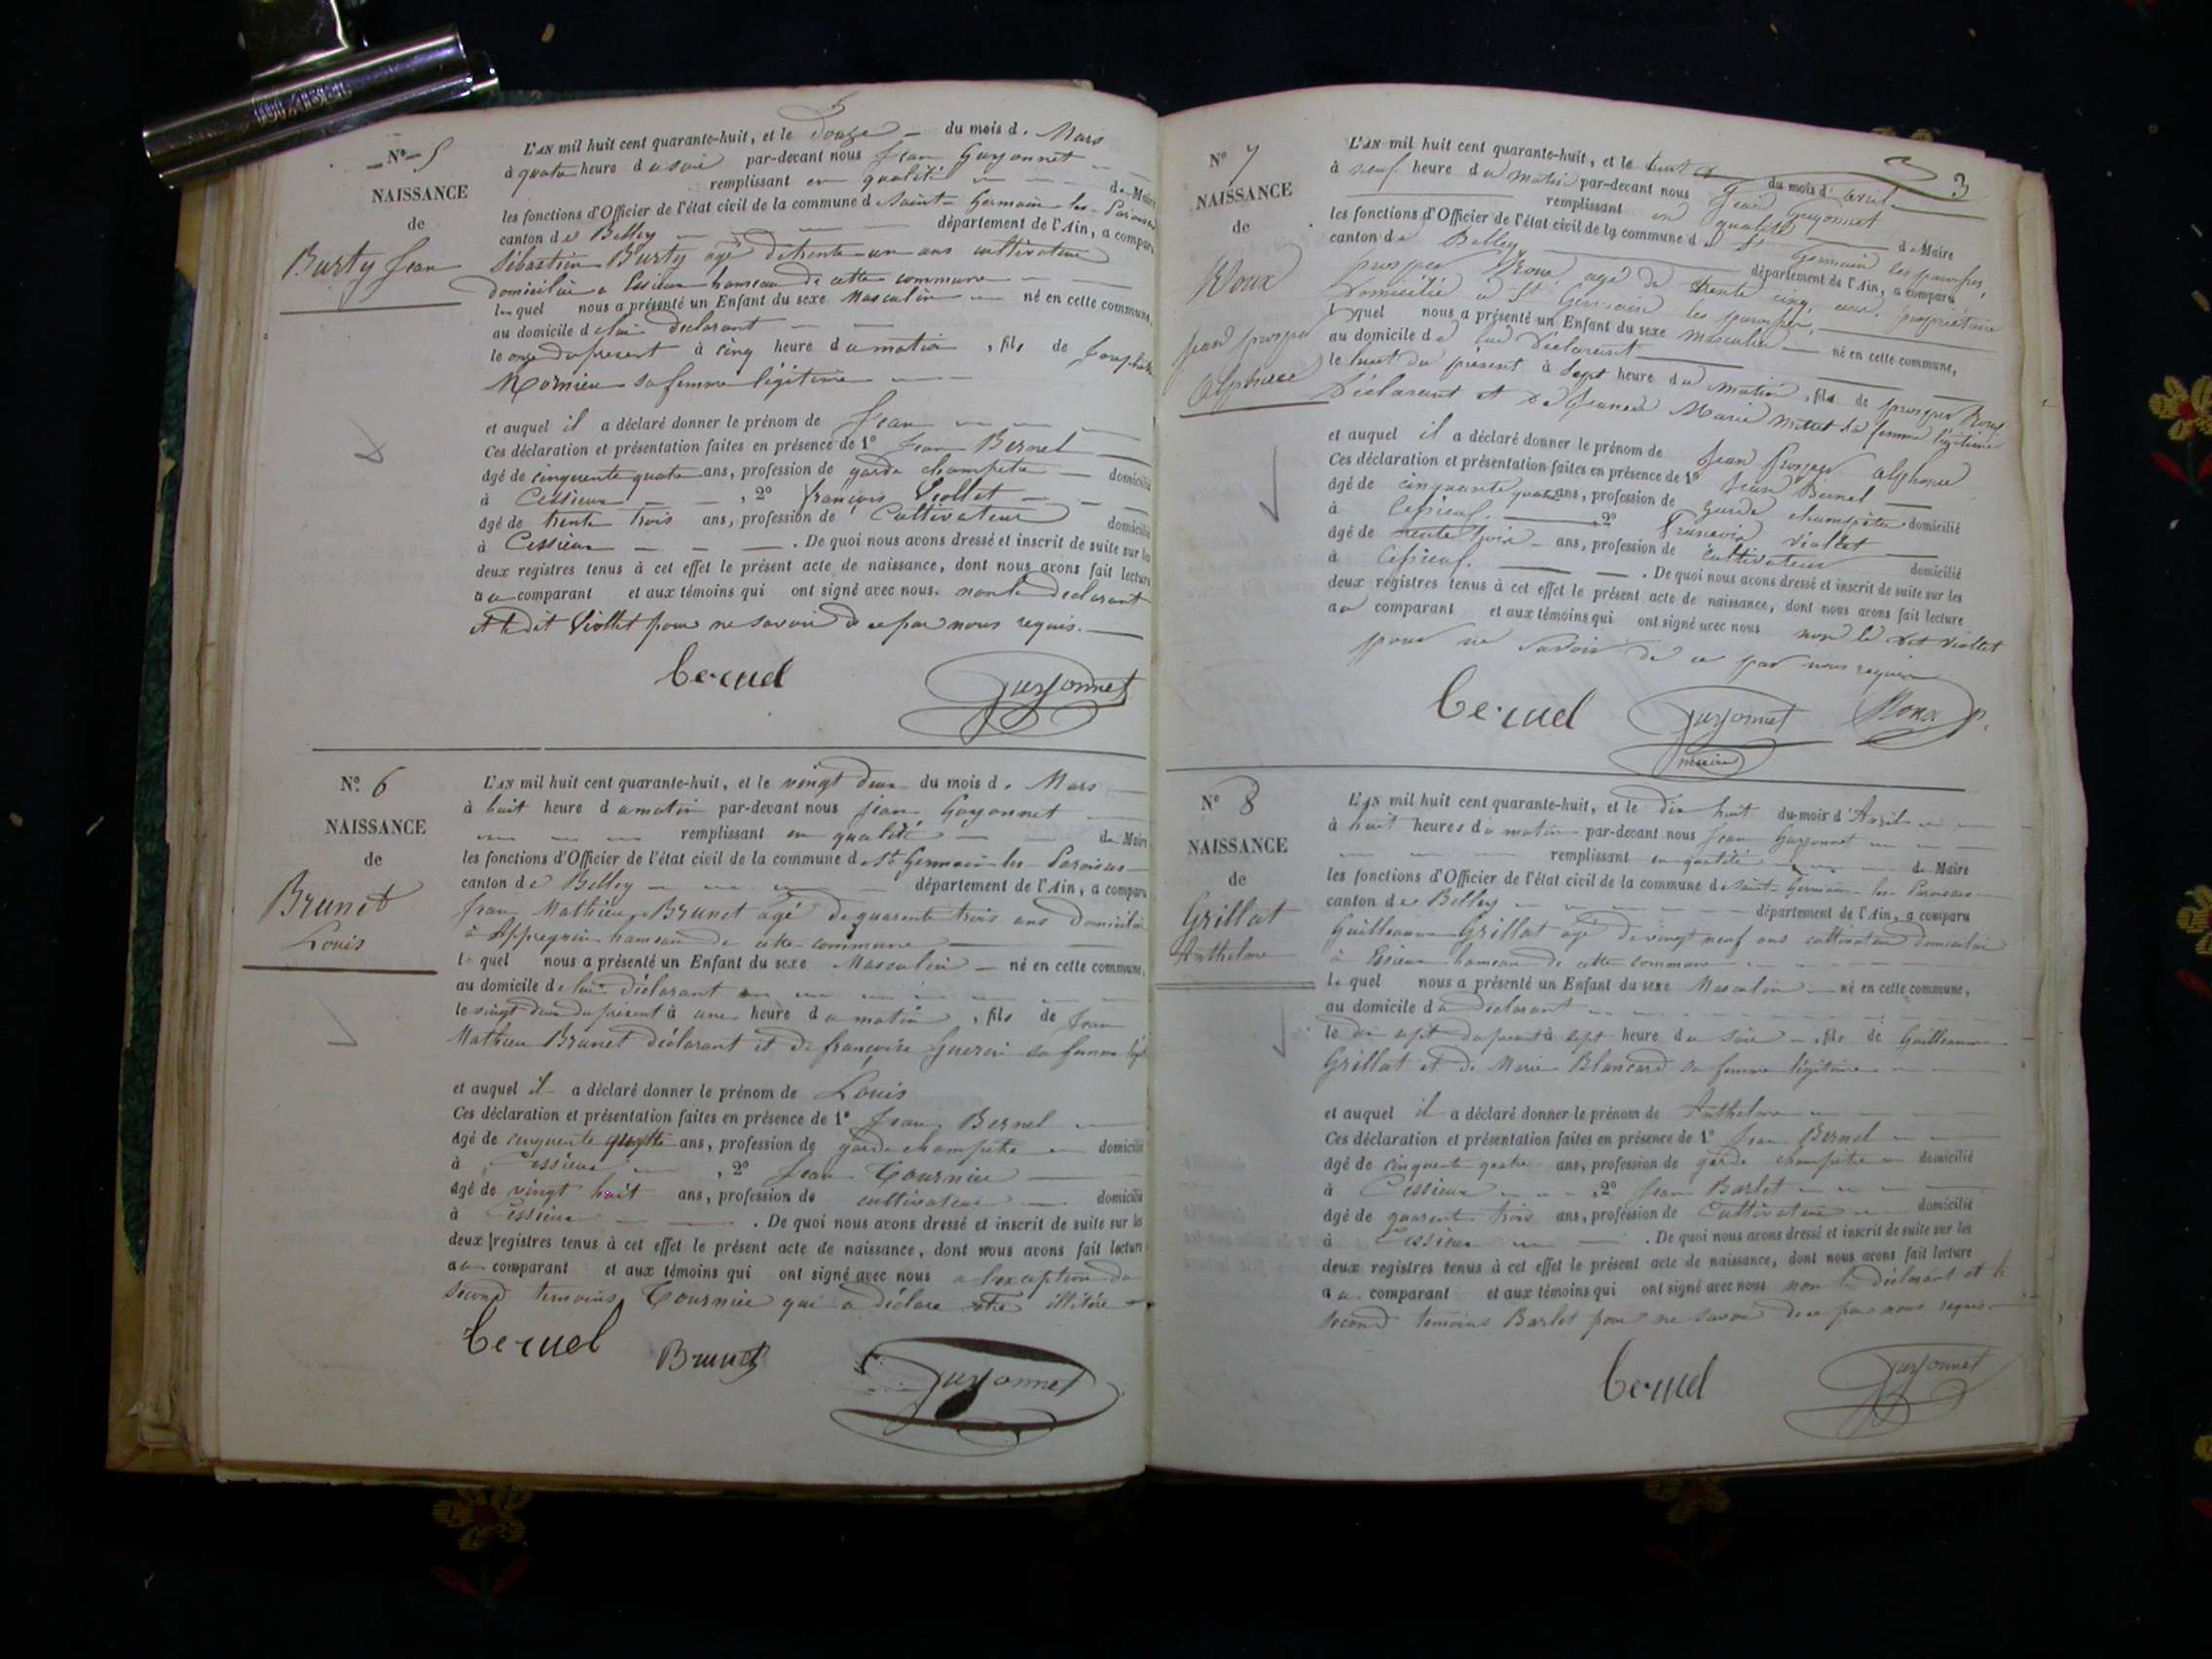 5
N° 5
NAISSANCE
de
Burty Jean
L'AN mil huit cent quarante-huit, et le Douze du mois de Mars
à quatre heure du soir par-devant nous Jean Guyonnet
remplissant en qualité de Maire
les fonctions d'Officier de l'état civil de la commune de Saint-Germain-les-Paroisses
canton de Belley département de l'Ain, a comparu
Sébastien Burty agé de trente un ans cultivateur
domicilié a Essieux hameau de cette commune
lequel nous a présenté un Enfant du sexe Masculin né en cette commune,
au domicile de lui déclarant
le onze du présent à cinq heure du matin, fils de Josephte
sa femme légitime
et auquel il a déclaré donner le prénom de Jean
Ces déclaration et présentation faites en présence de 1° Jean Bernel
âgé de cinquante quatre ans, profession de garde champetre domicilié
à Cessieux, 2° françois Viollet
âgé de trente trois ans, profession de Cultivateur domicilié
à Cessieux. De quoi nous avons dressé et inscrit de suite sur les
deux registres tenus à cet effet le présent acte de naissance, dont nous avons fait lecture
au comparant et aux témoins qui ont signé avec nous. non le declarant
et le dit Viollet pour ne savoir de ce par nous requis.
bernel Guyonnet
N° 6
NAISSANCE
de
Brunet
Louis
L'AN mil huit cent quarante-huit, et le vingt deux du mois de Mars
à huit heure du matin par-devant nous Jean Guyonnet
remplissant en qualité de Maire
les fonctions d'Officier de l'état civil de la commune de St Germain-les-Paroisses
canton de Belley département de l'Ain, a comparu
Jean Mathieu Brunet agé de quarante trois ans domicilié
à Appregnin hameau de cette commune
lequel nous a présenté un Enfant du sexe Masculin né en cette commune,
au domicile de lui déclarant
le vingt deux du présent à une heure du matin, fils de Jean
Mathieu Brunet déclarant et de françoise Guerin sa femme légit
et auquel il a déclaré donner le prénom de Louis
Ces déclaration et présentation faites en présence de 1° Jean Bernel
âgé de cinquante quatre ans, profession de garde champetre domicilié
à Cessieux, 2° Jean Tournier
âgé de vingt huit ans, profession de cultivateur domicilié
à Cessieux. De quoi nous avons dressé et inscrit de suite sur les
deux registres tenus à cet effet le présent acte de naissance, dont nous avons fait lecture
au comparant et aux témoins qui ont signé avec nous a l'exception du
second temoins Tournier qui a déclaré être illitéré
bernel Brunet Guyonnet
3
N° 7
NAISSANCE
de
Roux
jean prosper
alphonse
L'AN mil huit cent quarante-huit, et le huit du mois d'avril
à neuf heure du matin par-devant nous Jean Guyonnet
remplissant en qualité de Maire
les fonctions d'Officier de l'état civil de la commune de St Germain les paroisses,
canton de Belley département de l'Ain, a comparu
prosper Roux agé de trente cinq ans, propriétaire
Domicilié à St Germain les paroisses,
lequel nous a présenté un Enfant du sexe masculin né en cette commune,
au domicile de lui Déclarant
le huit du présent à sept heure du matin, fils de prosper Roux
Déclarant et de Jeanne Marie sa femme légitime
et auquel il a déclaré donner le prénom de Jean Prosper alphonse
Ces déclaration et présentation faites en présence de 1° Jean Bernel
âgé de cinquante quatre ans, profession de garde champêtre domicilié
à Cessieux. 2° Francois viollet
âgé de trente trois ans, profession de cultivateur domicilié
à Cessieux. De quoi nous avons dressé et inscrit de suite sur les
deux registres tenus à cet effet le présent acte de naissance, dont nous avons fait lecture
au comparant et aux témoins qui ont signé avec nous non le dit viollet
pour ne savoir de ce par nous requis
bernel Guyonnet Roux P.
maire
N° 8
NAISSANCE
de
Grillat
Anthelme
L'AN mil huit cent quarante-huit, et le dix huit du mois d'Avril
à huit heures du matin par-devant nous Jean Guyonnet
remplissant en qualité de Maire
les fonctions d'Officier de l'état civil de la commune de Saint-Germain-les-Paroisses
canton de Belley département de l'Ain, a comparu
Guilleaume Grillat agé de vingt neuf ans cultivateur domicilié
à Essieux hameau de cette commune
lequel nous a présenté un Enfant du sexe Masculin né en cette commune,
au domicile du Déclarant
le dix sept du présent à sept heure du soir, fils de Guilleaume
Grillat et de Marie Blancard sa femme légitime
et auquel il a déclaré donner le prénom de Anthelme
Ces déclaration et présentation faites en présence de 1° Jean Bernel
âgé de cinquante quatre ans, profession de garde champetre domicilié
à Cessieux, 2° Jean Barlet
âgé de quarante trois ans, profession de Cultivateur domicilié
à Cessieux. De quoi nous avons dressé et inscrit de suite sur les
deux registres tenus à cet effet le présent acte de naissance, dont nous avons fait lecture
au comparant et aux témoins qui ont signé avec nous non le déclarant et le
second temoins Barlet pour ne savoir de ce par nous requis.
bernel Guyonnet